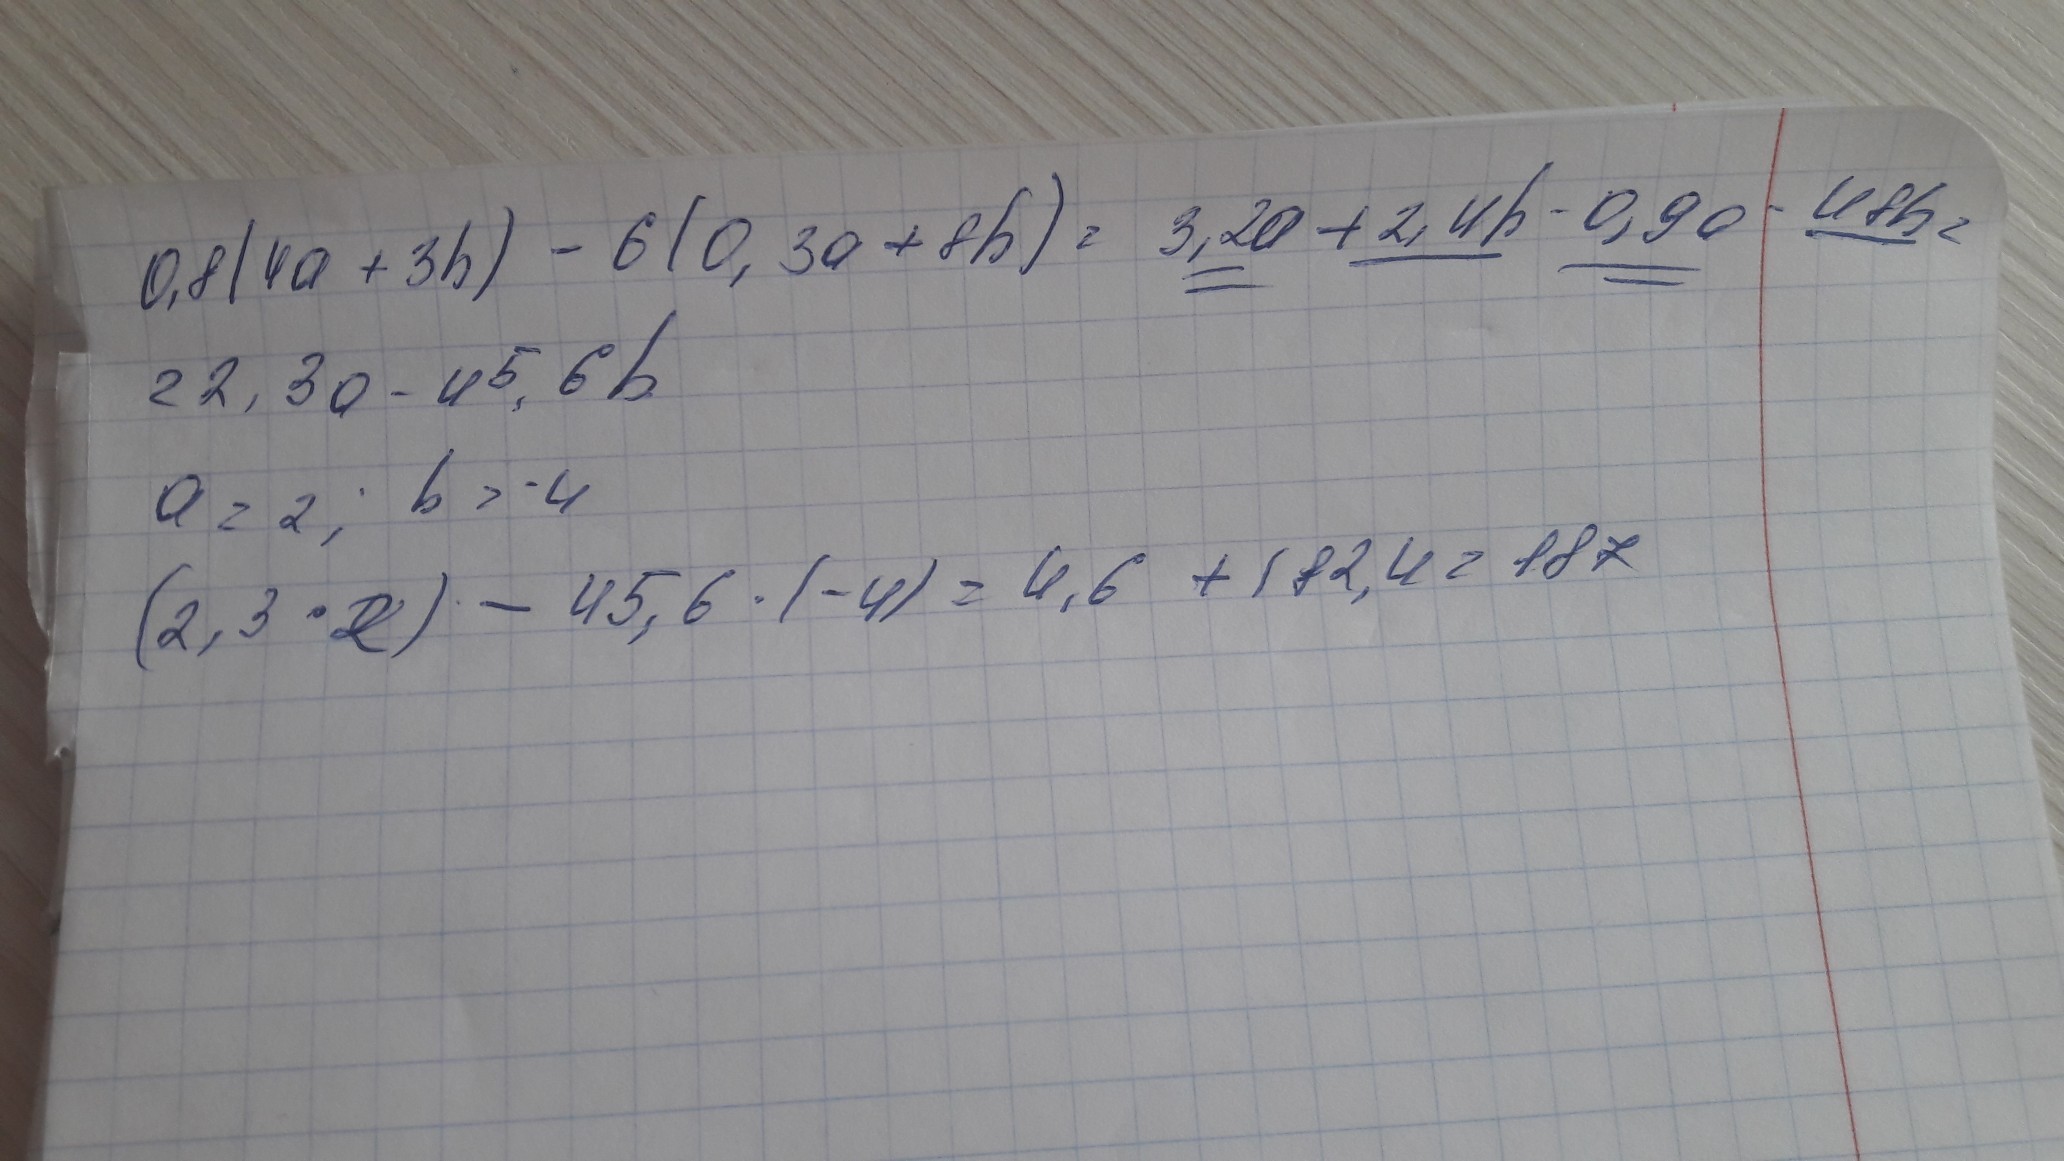 0,8(4a + 3b) - 6(0,3a + 8b) = 3,2a + 2,4b - 0,9a - 48b =
= 2,3a - 45,6b
a = 2; b = -4
(2,3 · 2) - 45,6 · (-4) = 4,6 + 182,4 = 187